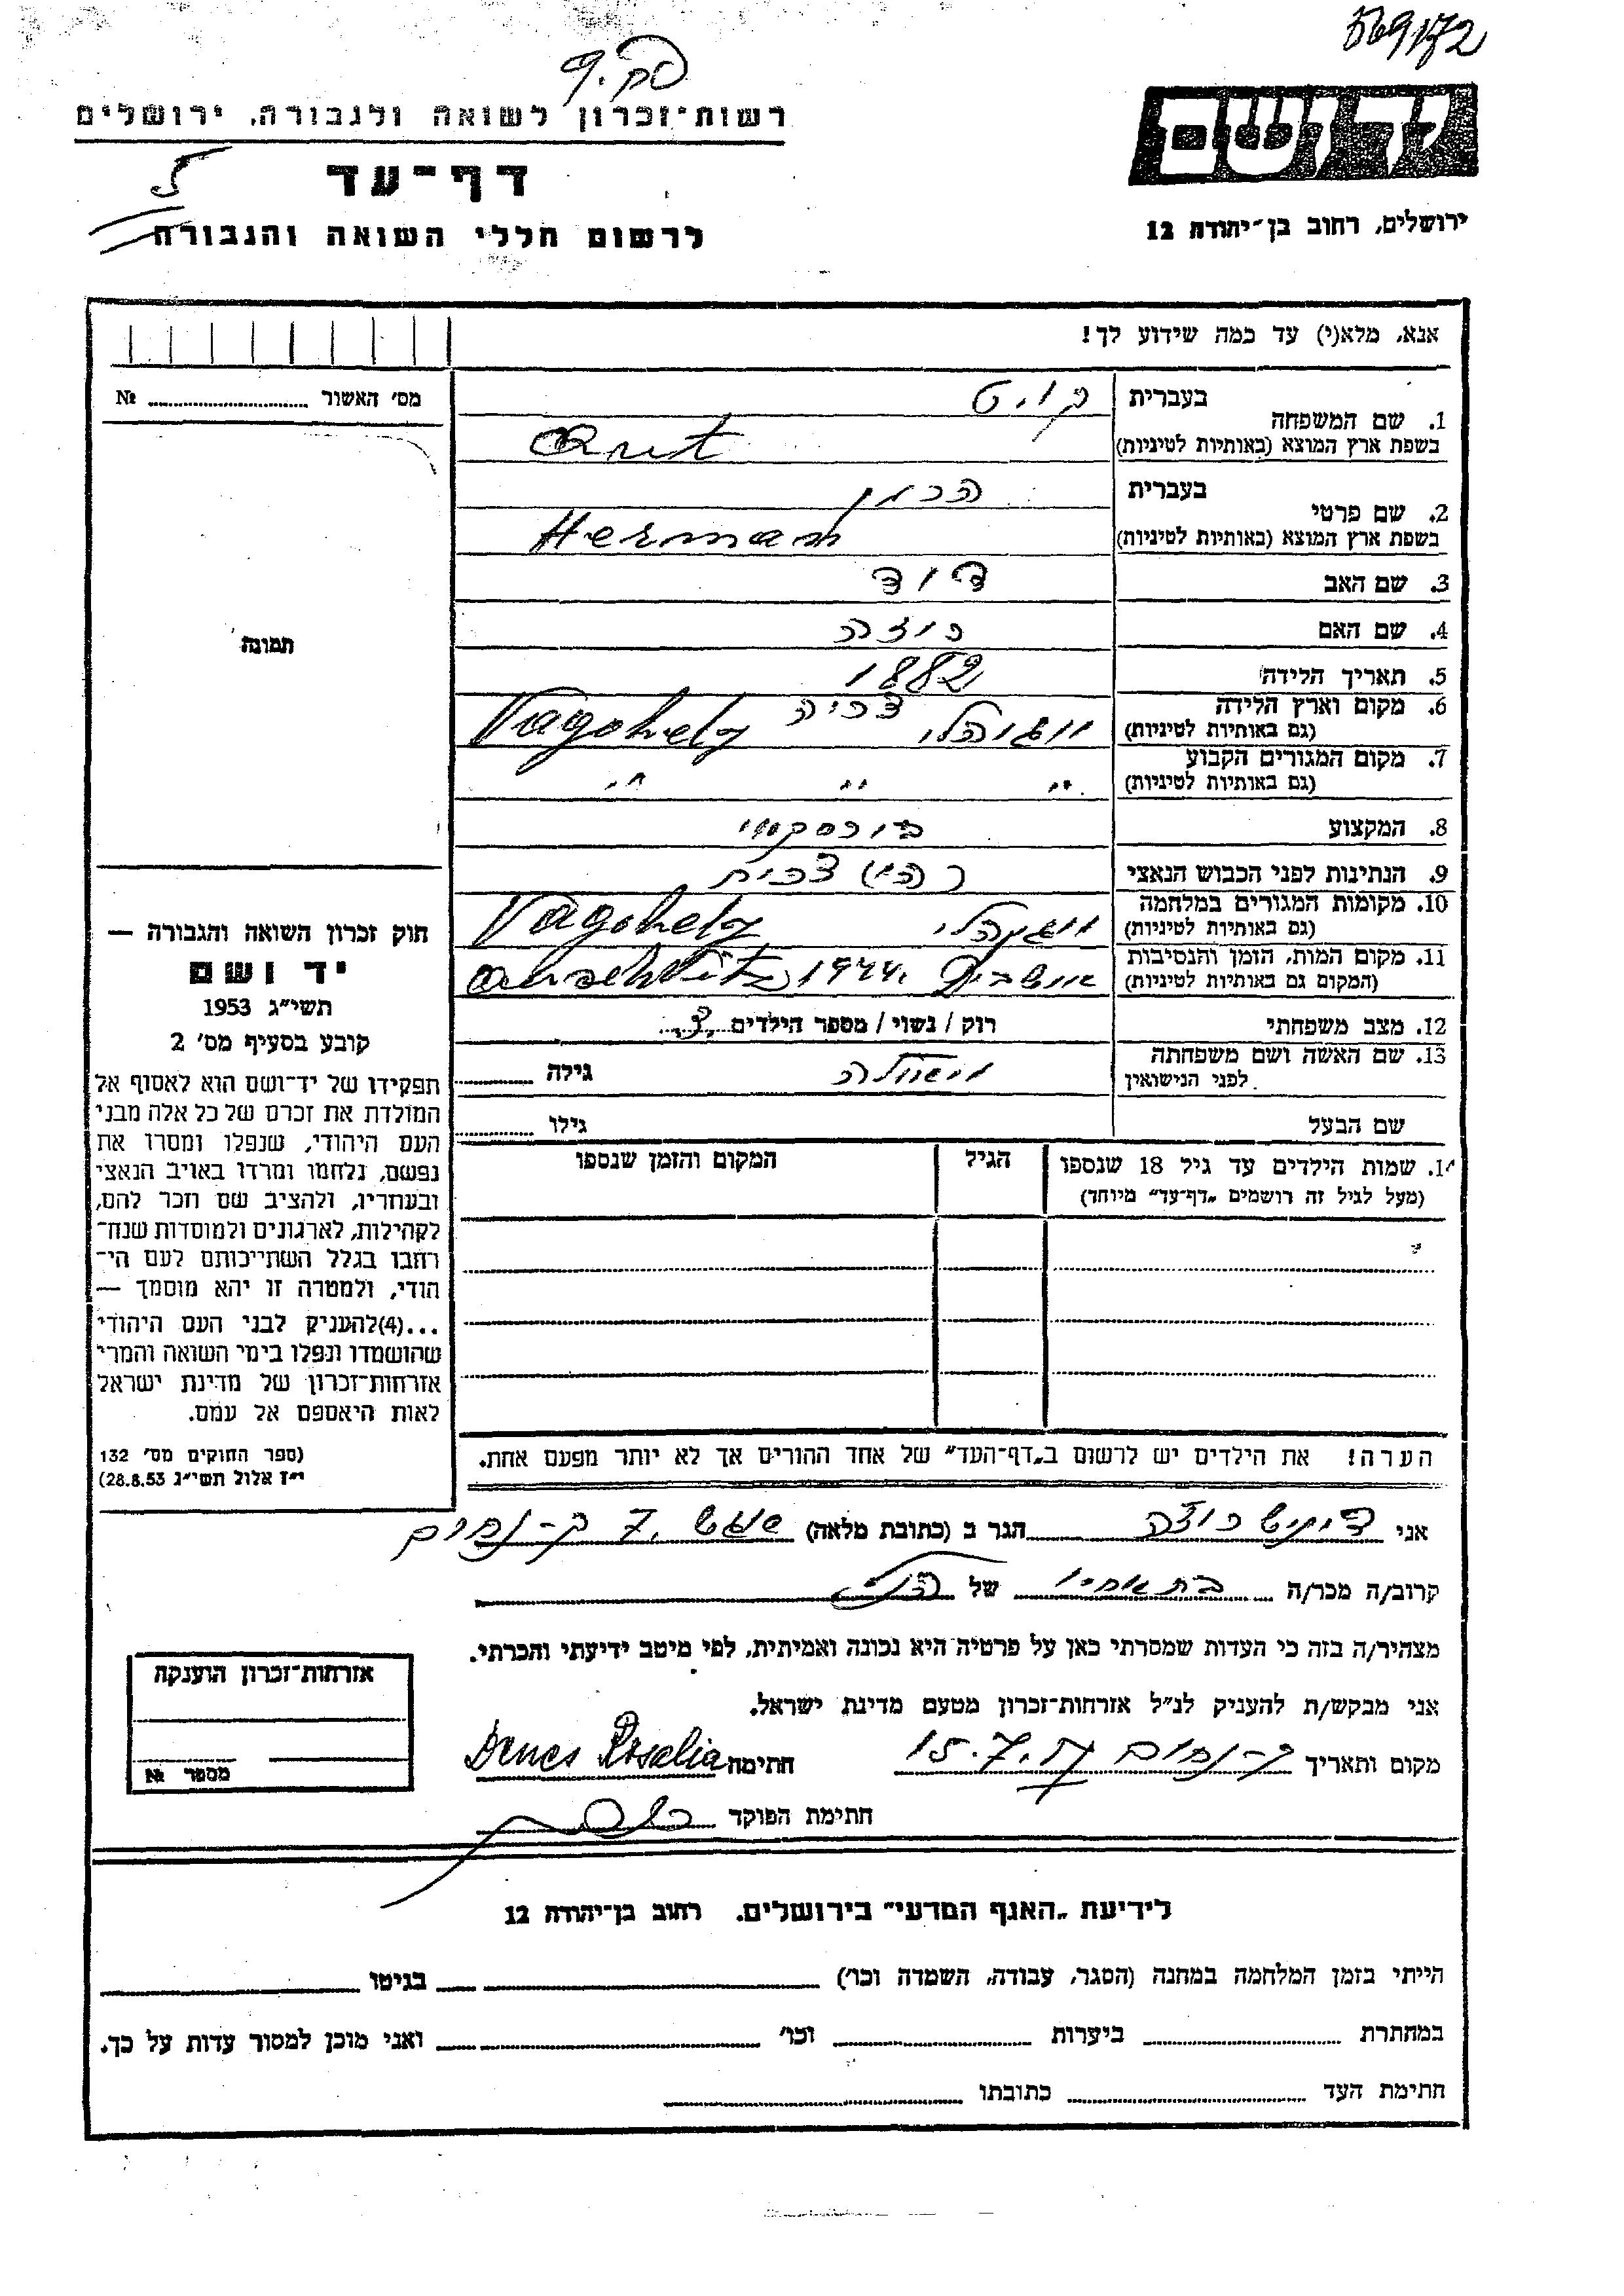 569172
ידושם
ירושלים, רחוב בן־יהודה 12
רשות־זכרון לשואה ולגבורה, ירושלים
דף־עד
לרשום חללי השואה והגבורה
אנא, מלא(י) עד כמה שידוע לך!
מס׳ האשור № 
תמונה
1. שם המשפחה
בעברית
בשפת ארץ המוצא (באותיות לטיניות)
2. שם פרטי
בעברית הרמן
בשפת ארץ המוצא (באותיות לטיניות) Herman
3. שם האב דוד
4. שם האם רוזה
5. תאריך הלידה 1882
6. מקום וארץ הלידה (גם באותיות לטיניות) Vagohely
7. מקום המגורים הקבוע (גם באותיות לטיניות) " " "
8. המקצוע בורסקאי
9. הנתינות לפני הכבוש הנאצי
10. מקומות המגורים במלחמה (גם באותיות לטיניות) Vagohely
11. מקום המות, הזמן והנסיבות (המקום גם באותיות לטיניות) אושביץ 1944. Auschwitz
12. מצב משפחתי רוק / נשוי / מספר הילדים 3
13. שם האשה ושם משפחתה לפני הנישואין גילה
שם הבעל גילו
14. שמות הילדים עד גיל 18 שנספו (מעל לגיל זה רושמים „דף־עד״ מיוחד)
הגיל
המקום והזמן שנספו
הערה! את הילדים יש לרשום ב„דף־העד״ של אחד ההורים אך לא יותר מפעם אחת.
חוק זכרון השואה והגבורה —
יד ושם
תשי״ג 1953
קובע בסעיף מס׳ 2
תפקידו של יד־ושם הוא לאסוף אל
המולדת את זכרם של כל אלה מבני
העם היהודי, שנפלו ומסרו את
נפשם, נלחמו ומרדו באויב הנאצי
ובעוזריו, ולהציב שם וזכר להם,
לקהילות, לארגונים ולמוסדות שנח־
רבו בגלל השתייכותם לעם הי־
הודי, ולמטרה זו יהא מוסמך —
...(4)להעניק לבני העם היהודי
שהושמדו ונפלו בימי השואה והמרי
אזרחות־זכרון של מדינת ישראל
לאות היאספם אל עמם.
(ספר החוקים מס׳ 132
י״ז אלול תשי״ג 28.8.53)
אני רוזה הגר ב (כתובת מלאה)
קרוב/ה מכר/ה בת אחיו של הנ״ל
מצהיר/ה בזה כי העדות שמסרתי כאן על פרטיה היא נכונה ואמיתית, לפי מיטב ידיעתי והכרתי.
אני מבקש/ת להעניק לנ״ל אזרחות־זכרון מטעם מדינת ישראל.
מקום ותאריך 15.7.57 חתימה Denes Rosalia
חתימת הפוקד
אזרחות־זכרון הוענקה
מספר №
לידיעת „האגף המדעי״ בירושלים. רחוב בן־יהודה 12
הייתי בזמן המלחמה במחנה (הסגר, עבודה, השמדה וכו׳) בגיטו
במחתרת ביערות וכו׳ ואני מוכן למסור עדות על כך.
חתימת העד כתובתו